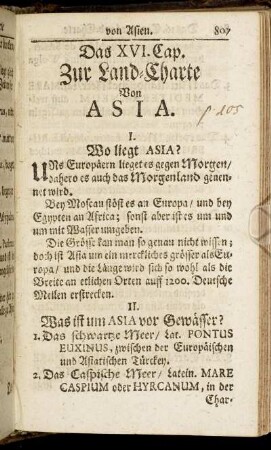 von Asien. 807
Das XVI. Cap.
Zur Land-Charte
Von
ASIA.
p 105
I.
Wo liegt ASIA?
UNs Europäern lieget es gegen Morgen/
dahero es auch das Morgenland genen-
net wird.
Bey Moscau stöst es an Europa/ und bey
Egypten an Africa; sonst aber ist es um und
um mit Wasser umgeben.
Die Grösse kan man so genau nicht wissen;
doch ist Asia um ein merckliches grösser als Eu-
ropa/ und die Länge wird sich so wohl als die
Breite an etlichen Orten auff 1200. Deutsche
Meilen erstrecken.
II.
Was ist um ASIA vor Gewässer?
1. Das schwartze Meer/ Lat. PONTUS
EUXINUS, zwischen der Europäischen
und Asiatischen Türckey.
2. Das Caspische Meer/ Latein. MARE
CASPIUM oder HYRCANUM, in der
Char-